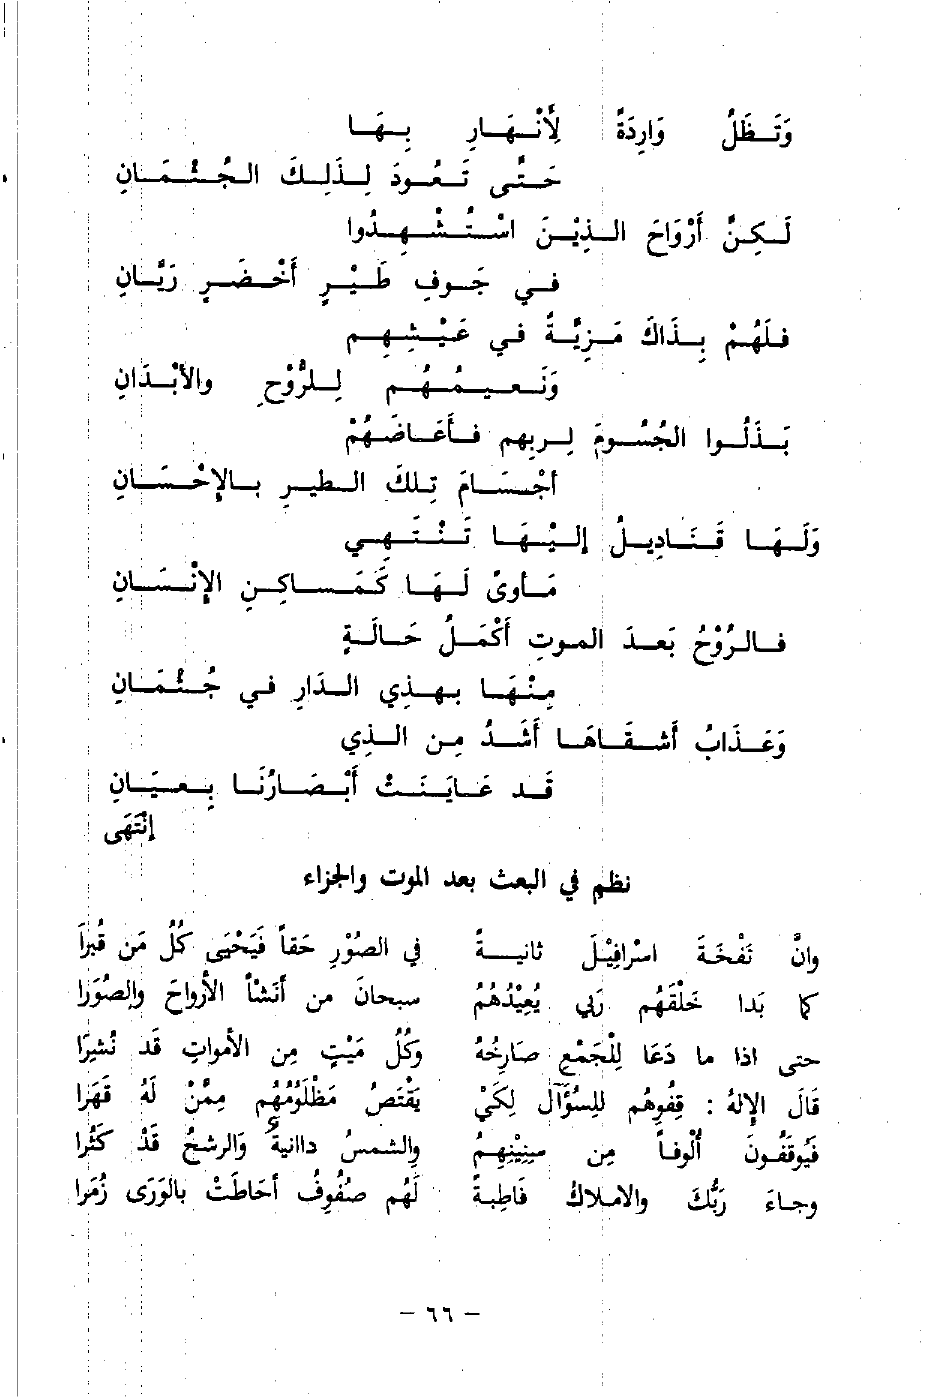 وَتَظَلُّ وَارِدَةً لِأَنْهَارِ بِهَا
حَتَّى تَعُودَ لِذَلِكَ الجُثْمَانِ
لَكِنَّ أَرْوَاحَ الذِيْنَ اسْتُشْهِدُوا
في جَوفِ طَيْرٍ أَخْضَرٍ رَيَّانِ
فلَهُمْ بِذَاكَ مَزِيَّةٌ في عَيْشِهِم
وَنَعيمُهُم لِلرُّوْحِ والأبْدَانِ
بَذَلُوا الجُسُومَ لِربِهم فأَعَاضَهُمْ
أجْسَامَ تِلكَ الطيرِ بالإحْسَانِ
وَلَهَا قَنَادِيلُ إليْهَا تَنْتَهِي
مَأوىً لَهَا كَمَساكِنِ الإنْسَانِ
فالرُوْحُ بَعدَ الموتِ أَكْمَلُ حَالَةٍ
مِنْهَا بهذِي الدَارِ في جُثْمَانِ
وَعَذَابُ أَشقَاهَا أَشَدُ مِن الذِي
قَد عَايَنَتْ أَبْصَارُنَا بِعيَانِ
إنْتَهَى
نظم في البعث بعد الموت والجزاء
وانَّ نَفْخَةَ اسْرافِيْلَ ثانيةً في الصُوْرِ حَقاً فَيَحْيَى كُلُ مَن قُبرَا
كما بَدا خَلْقَهُم رَبي يُعِيْدُهُمُ سبحانَ من أَنَشْأَ الأرواحَ والصُوَرَا
حتى اذا ما دَعَا لِلْجَمْعِ صَارِخُهُ وَكُلُ مَيْتٍ مِن الأمواتِ قَد نُشِرَا
قَالَ الإِلهُ : قِفُوهُم لِلسُؤَآلِ لِكَيْ يَقْتَصُ مَظْلُومُهُم مِمَّنْ لَهُ قَهَرَا
فَيُوقَفُونَ أُلْوفاً مِن سِنِيْنِهِمُ والشمسُ داانيةٌ وَالرشحُ قَدْ كَثُرا
وجاءَ رَبُّكَ والاملاكُ قَاطِبةً لَهُم صُفُوفٌ أحَاطَتْ بالوَرَى زُمَرا
- ٦٦ -